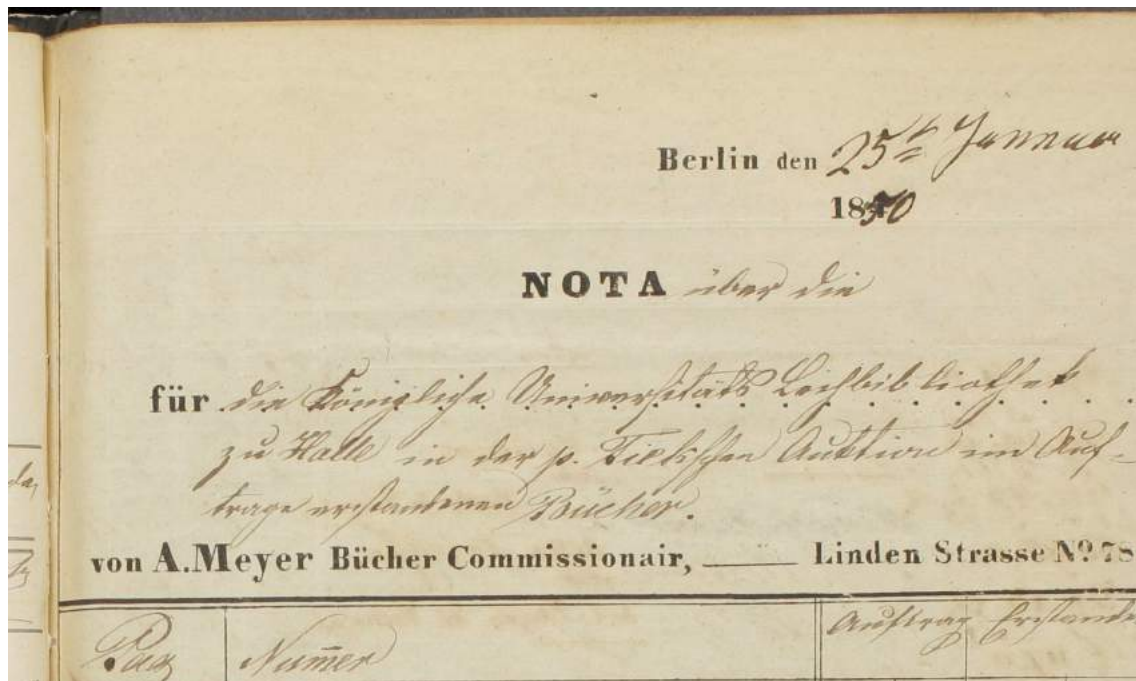 Berlin den 25t Januar
1850
NOTA über die
für die Königliche Universitäts Leihbibliothek
zu Halle in der p. Tiekschen Auktion im Auf-
trage erstandenen Bücher.
von A. Meyer Bücher Commissionair, Linden Strasse No. 78
Pag Num̅er Auftrag Erstande